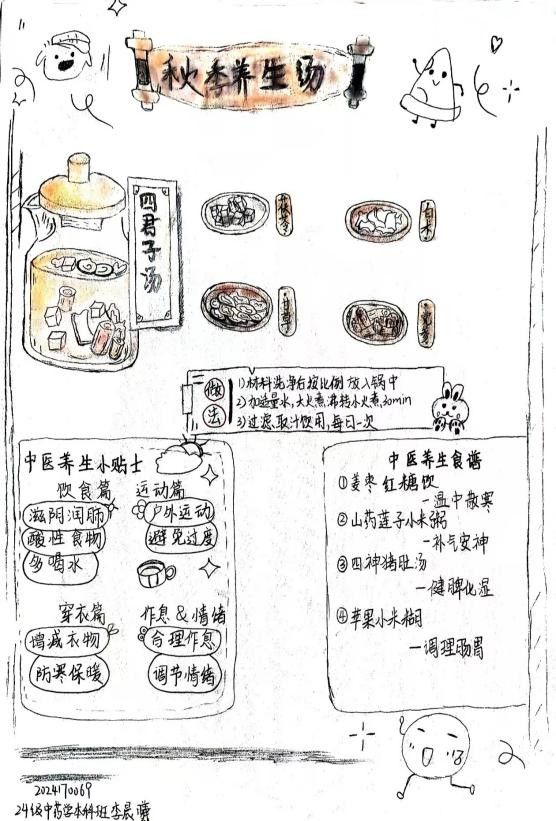 秋季养生汤
四君子汤
茯苓
白术
甘草
党参
做法
1)材料洗净后按比例放入锅中
2)加适量水,大火煮沸转小火煮30min
3)过滤,取汁饮用,每日一次
中医养生小贴士
饮食篇 运动篇
滋阴润肺 户外运动
酸性食物 避免过度
多喝水
穿衣篇 作息&情绪
增减衣物 合理作息
防寒保暖 调节情绪
中医养生食谱
①姜枣红糖饮
—温中散寒
②山药莲子小米粥
—补气安神
③四神猪肚汤
—健脾化湿
④苹果小米糊
—调理肠胃
2024170069
24级中药学本科班李晨曦